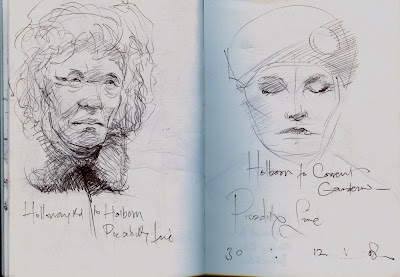 Holloway Rd to Holborn
Picadily line
Holborn to Covent
Gardens
Picadily line
30 . 12 . 08